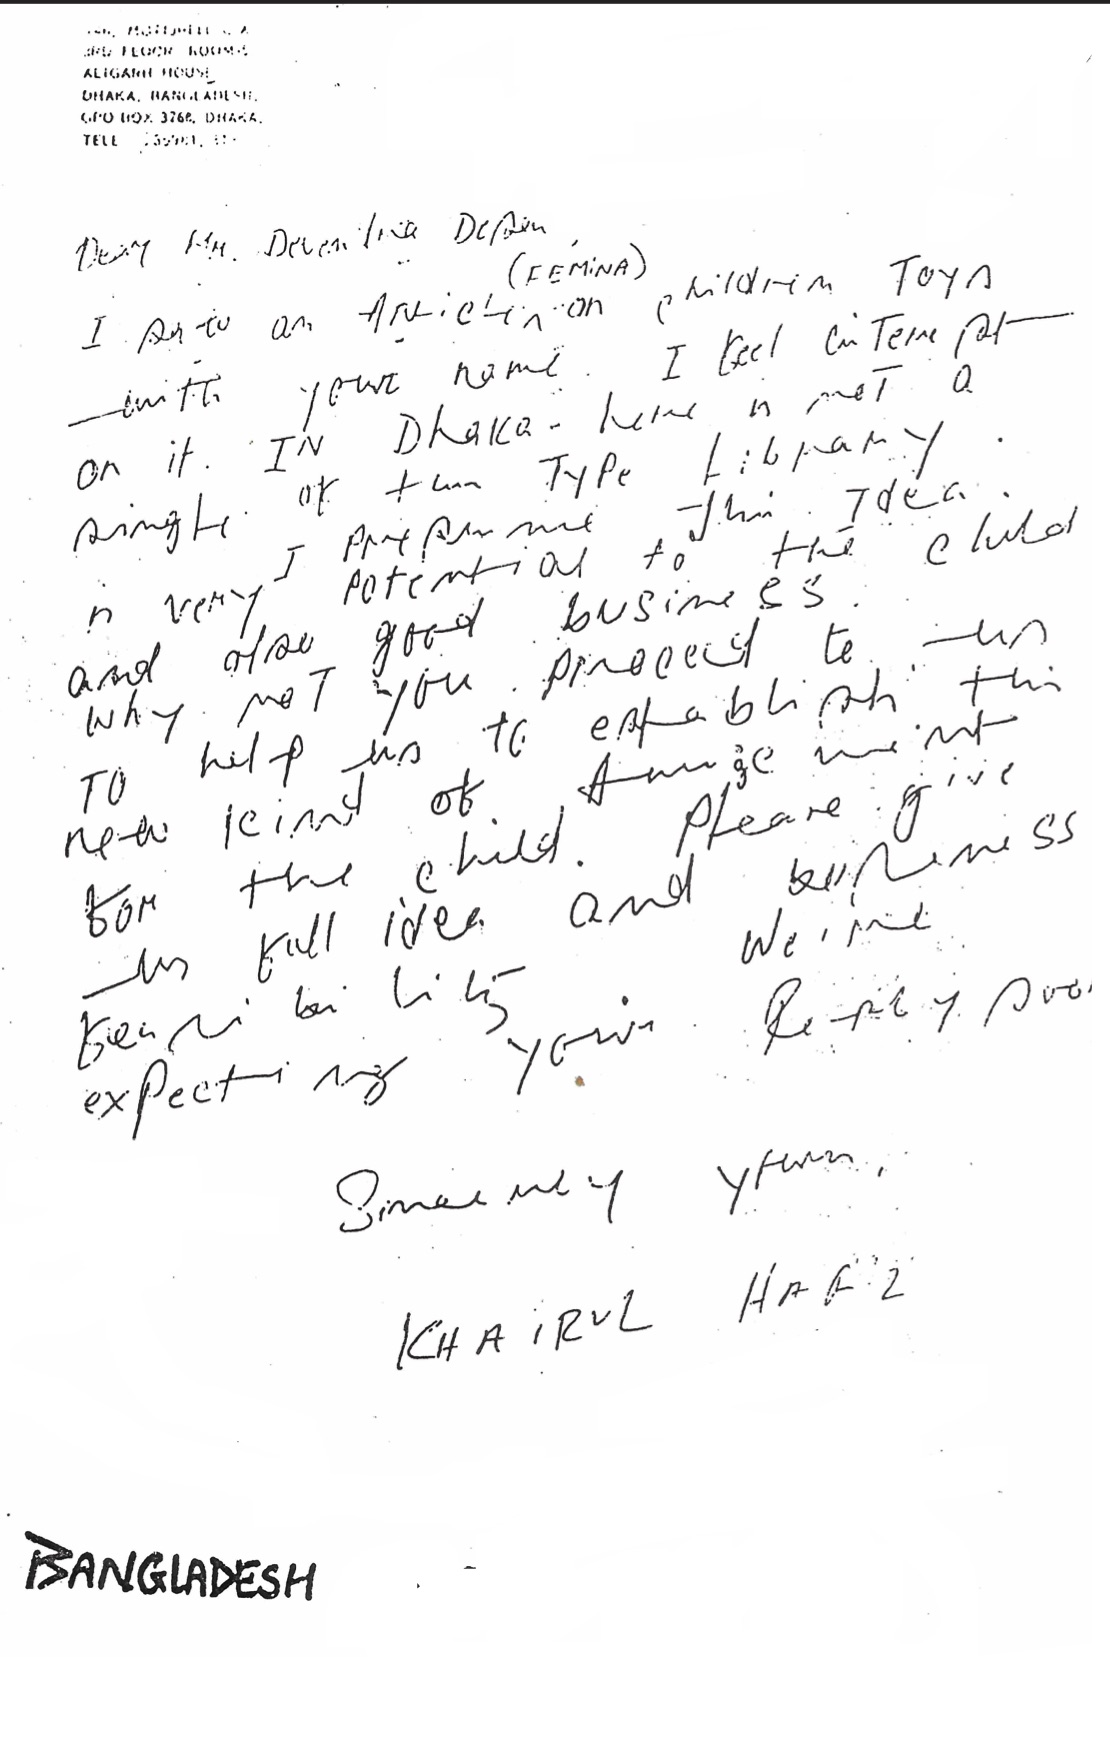 3RD FLOOR ROOM-5
ALIGARH HOUSE
DHAKA, BANGLADESH.
GPO BOX 3768, DHAKA.
TELL
Dear Mr. Devendra Desai,
(FEMINA)
I saw an Article on children Toys
with your name. I feel interest
on it. IN Dhaka here is not a
single of this Type Library.
I presume This Idea
is very potential to the child
and also good business.
Why not you proceed to us
TO help us to establish this
new kind of Amusement
for the child. Please give
us full idea and business
feasibility We are
expecting your Reply soon
Sincerely yours,
KHAIRUL HAFIZ
BANGLADESH